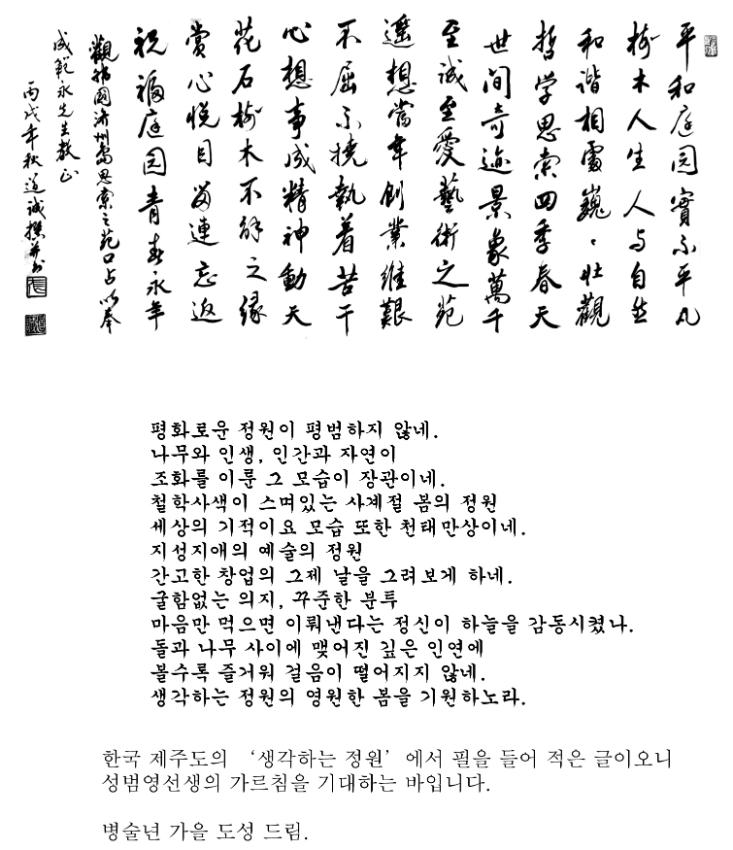 平和庭园實不平凡
樹木人生人与自然
和谐相處巍々壮觀
哲学思索四季春天
世间奇迹景象萬千
至诚至愛藝術之苑
遥想當年創業维艱
不屈不撓執着苦干
心想事成精神動天
花石樹木不解之缘
賞心悦目留連忘返
祝福庭园青春永年
觀韩國济州島思索之苑口占以奉
成範永先生教正
丙戌年秋道诚撰并书
평화로운 정원이 평범하지 않네.
나무와 인생, 인간과 자연이
조화를 이룬 그 모습이 장관이네.
철학사색이 스며있는 사계절 봄의 정원
세상의 기적이요 모습 또한 천태만상이네.
지성지애의 예술의 정원
간고한 창업의 그제 날을 그려보게 하네.
굴함없는 의지, 꾸준한 분투
마음만 먹으면 이뤄낸다는 정신이 하늘을 감동시켰나.
돌과 나무 사이에 맺어진 깊은 인연에
볼수록 즐거워 걸음이 떨어지지 않네.
생각하는 정원의 영원한 봄을 기원하노라.
한국 제주도의 ‘생각하는 정원’에서 필을 들어 적은 글이오니
성범영선생의 가르침을 기대하는 바입니다.
병술년 가을 도성 드림.